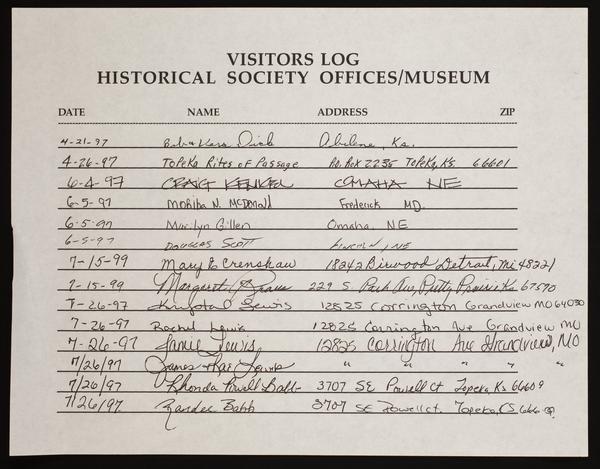 VISITORS LOG
HISTORICAL SOCIETY OFFICES/MUSEUM
DATE NAME ADDRESS ZIP
4-21-97 Dick Abilene, Ks.
4-26-97 Topeka Rites of Passage P.O. Box 2235 Topeka, Ks. 66601
6-4-97 CRAIG KENKEL OMAHA NE
6-5-97 N. McDonald Frederick MD.
6-5-97 Marilyn Gillen Omaha, NE
6-5-97 DOUGLAS SCOTT LINCOLN, NE
7-15-99 Mary E Crenshaw 18242 Birwood Detroit, Mi 48221
7-15-99 Margaret 229 S. Park Ave, Pretty Prairie Ks 67570
7-26-97 Krystal Lewis 12825 Corrington Grandview MO 64030
7-26-97 Rachel Lewis 12825 Corrington Ave Grandview MO
7-26-97 Janie Lewis 12825 Corrington Ave Grandview, MO
7/26/97 James Lewis " " " "
7/26/97 Rhonda Powell Babb 3707 SE Powell Ct Topeka, Ks 66609
7/26/97 Babb 3707 SE Powell ct. Topeka, KS